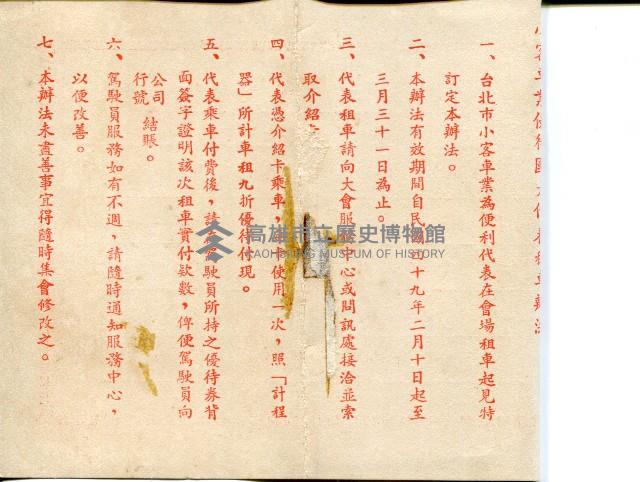 小客車業便利國大代表租車辦法
一、台北市小客車業為便利代表在會場租車起見特
訂定本辦法。
二、本辦法有效期間自民國五十九年二月十日起至
三月三十一日為止。
三、代表租車請向大會服務中心或問訊處接洽並索
取介紹卡
四、代表憑介紹卡乘車，每卡使用一次，照「計程
器」所計車租九折優待付現。
五、代表乘車付費後，請在駕駛員所持之優待券背
面簽字證明該次租車實付款數，俾便駕駛員向
公司
行號
結賬。
六、駕駛員服務如有不週，請隨時通知服務中心，
以便改善。
七、本辦法未盡善事宜得隨時集會修改之。
高雄市立歷史博物館
KAOHSIUNG MUSEUM OF HISTORY